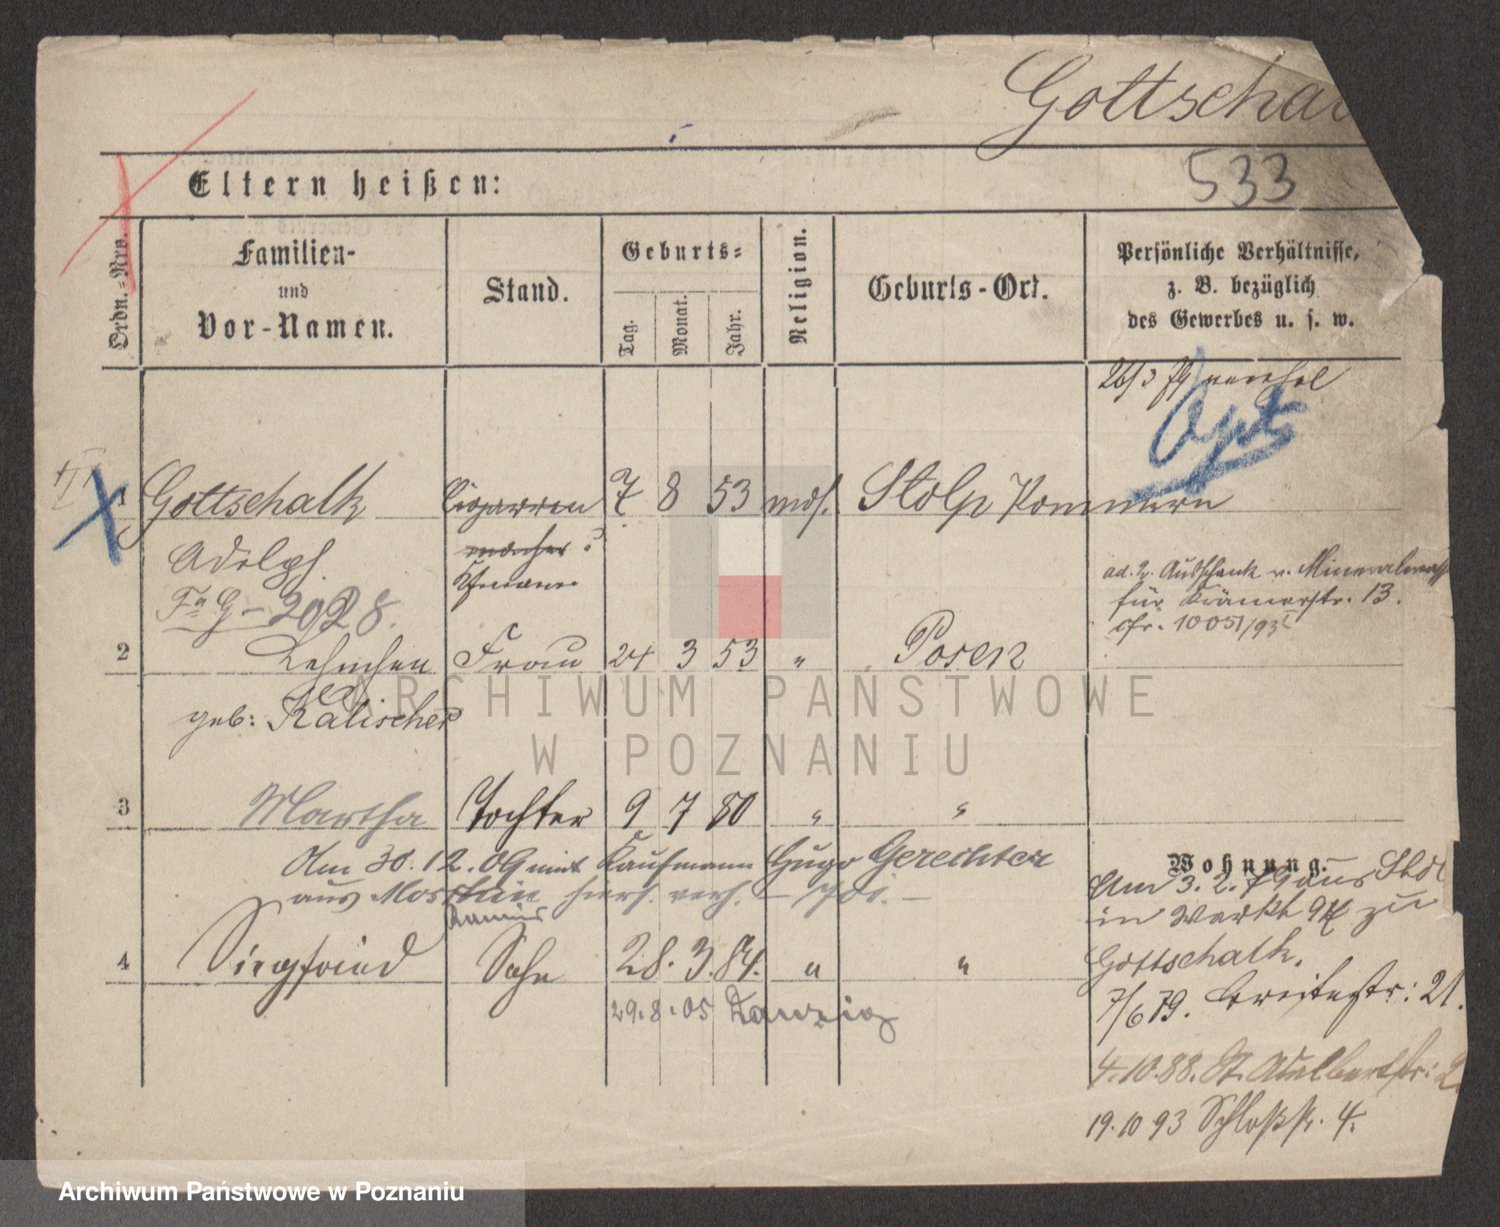 Gottschal
533
Eltern heißen:
Ordn.-Nro.
Familien-
und
Vor-Namen.
Stand.
Geburts-
Tag.
Monat.
Jahr.
Religion.
Geburts-Ort.
Persönliche Verhältnisse,
z. B. bezüglich
des Gewerbes u. s. w.
26/3 79
1 Gottschalk Cigarren 7 8 53 mos. Stolp Pommern
Adolph macher
Kfmann
2028.
ad. 2. Ausschank v. Mineralwass
für Krämerstr. 13.
cfr. 1005/93
2 Lehnchen Frau 24 3 53 " Posen
geb: Kalischer
3 Martha Tochter 9 7 80 " "
Am 30.12.09 mit Kaufmann Hugo Gerechter
aus verh.
4 Siegfried Sohn 28. 3. 84. " "
29.8.05 Danzig
Wohnung.
Am 3.2.79 aus Stol
in Markt 94 zu
Gottschalk.
7/6 79. Breitestr: 21.
4.10.88. St. Adalbertstr: 2
19.10 93 Schloßstr. 4.
ARCHIWUM PAŃSTWOWE
W POZNANIU
Archiwum Państwowe w Poznaniu